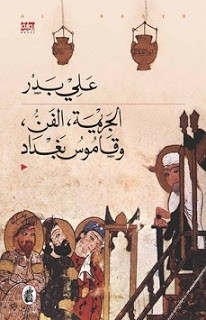 علي بدر
الجريمة، الفن،
وقاموس بغداد